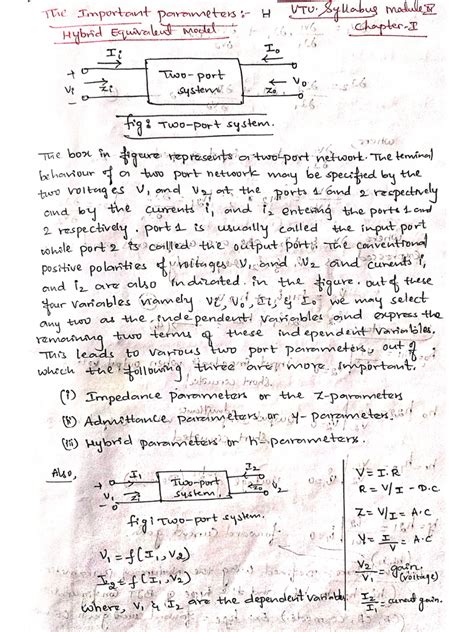 The Important parameters:- H VTU. Syllabus module IV
Hybrid Equivalent Model Chapter-I
Ii Io
+ Vi Zi Two-port system Zo Vo
fig: Two-port system.
The box in figure represents a two-port network. The terminal
behaviour of a two port network may be specified by the
two voltages V1 and V2 at the ports 1 and 2 respectively
and by the currents i1 and i2 entering the ports 1 and
2 respectively. port 1 is usually called the input port
while port 2 is called the output port. The conventional
positive polarities of voltages V1 and V2 and currents i1
and i2 are also indicated in the figure. out of these
four variables namely Vi, Vo, Ii, & Io we may select
any two as the independent variables and express the
remaining two terms of these independent variables.
This leads to various two port parameters, out of
which the following three are more important.
(i) Impedance Parameters or the Z-parameters
(ii) Admittance parameters or Y-parameters
(iii) Hybrid parameters or h-parameters.
Also,
I1 I2
+ V1 Zi Two-port system Zo V2
fig: Two-port system.
V1 = f(I1, V2)
I2 = f(I1, V2)
where, V1 & I2 are the dependent variable
V = I.R
R = V/I - D.C
Z = V/I = A.C
Y = I/V = A.C
V2/V1 = gain (voltage)
I2/I1 = current gain.